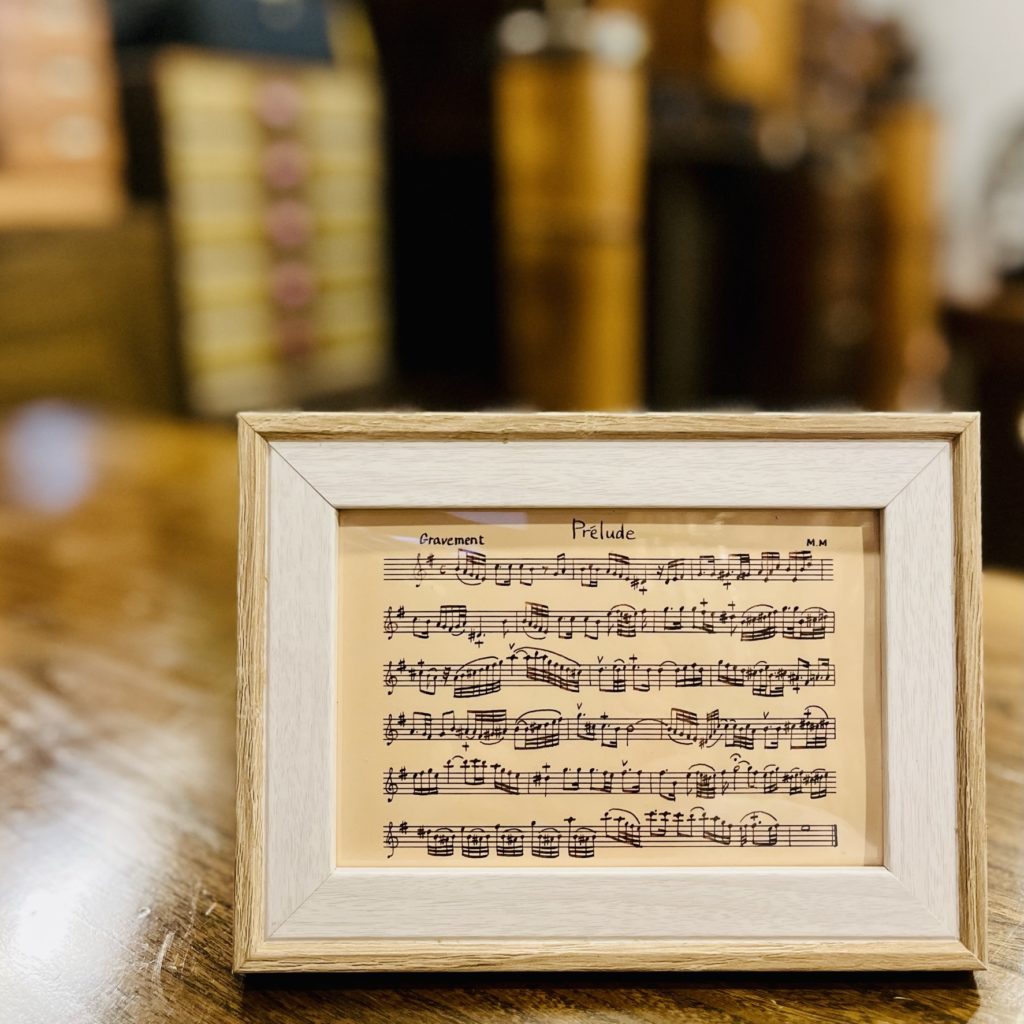 Prélude
Gravement M.M